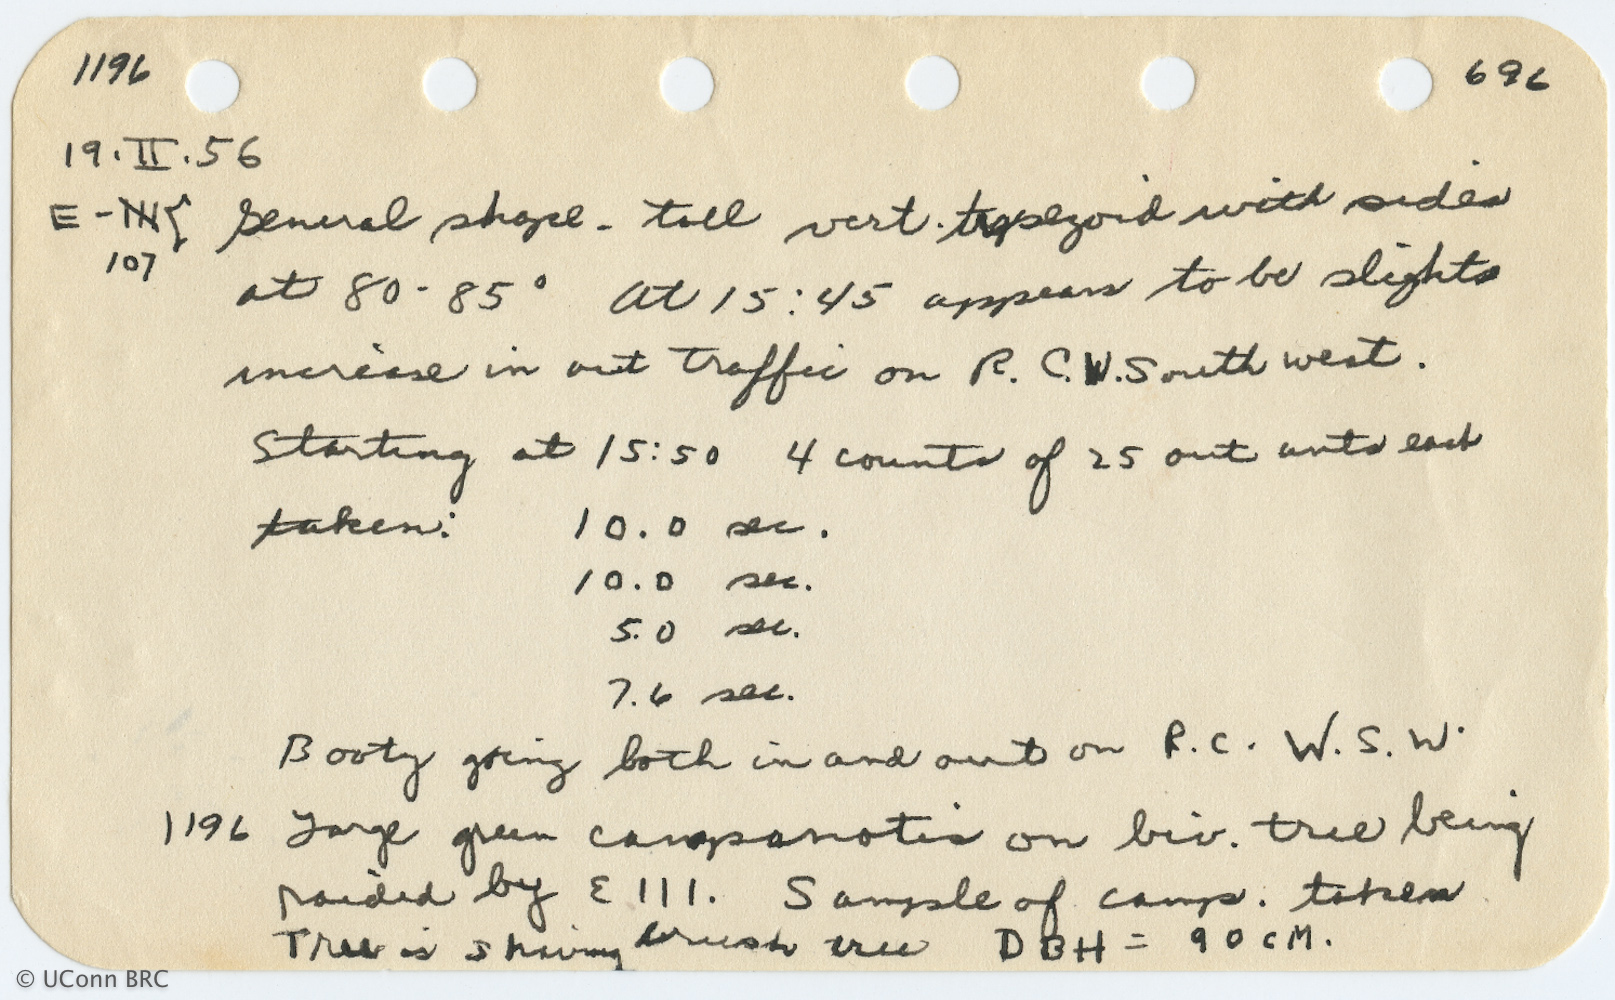 1196 696
19.II.56
E - 107 General shape - tall vert. trapezoid with sides
at 80-85° At 15:45 appears to be slight
increase in out traffic on R.C.W. South west.
Starting at 15:50 4 counts of 25 out ants each
taken: 10.0 sec.
10.0 sec.
5.0 sec.
7.6 sec.
Booty going both in and out on R.C. W.S.W.
1196 Large green camponotis on biv. tree being
raided by E 111. Sample of camp. taken
Tree is shaving brush tree DBH = 90 cM.
© UConn BRC